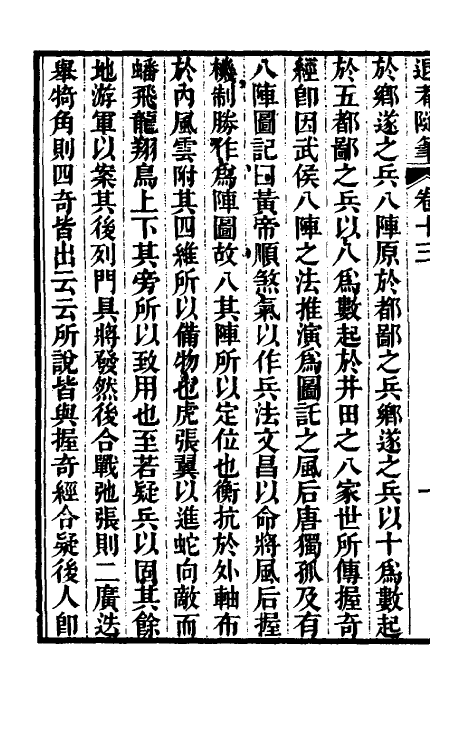 退菴隨筆 卷十三 一
於鄉遂之兵八陣原於都鄙之兵鄉遂之兵以十為數起
於五都鄙之兵以八為數起於井田之八家世所傳握奇
經卽因武侯八陣之法推演為圖託之風后唐獨孤及有
八陣圖記曰黃帝順煞氣以作兵法文昌以命將風后握
機制勝作為陣圖故八其陣所以定位也衡抗於外軸布
於內風雲附其四維所以備物也虎張翼以進蛇向敵而
蟠飛龍翔鳥上下其旁所以致用也至若疑兵以固其餘
地游軍以案其後列門具將發然後合戰弛張則二廣迭
舉犄角則四奇皆出云云所說皆與握奇經合疑後人卽